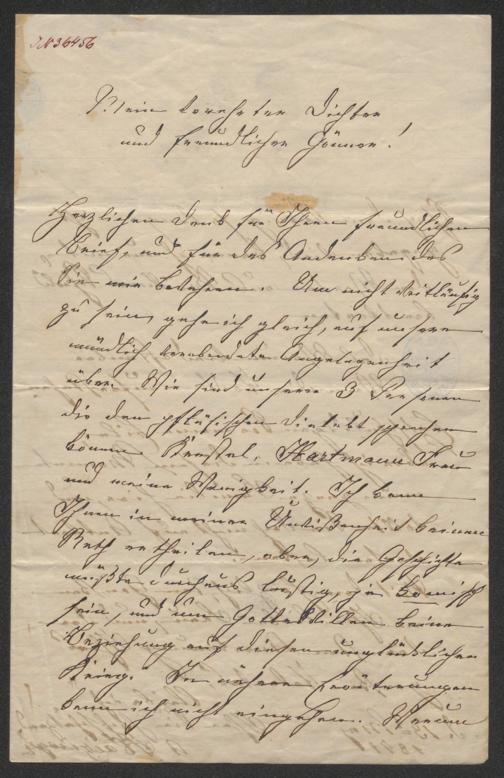 JN 36456
Mein verehrter Dichter
und freundlicher Gönner!
Herzlichen Dank für Ihren freundlichen
Brief, und für das Andenken das
Sie mir bewahren. Um nicht weitläufig
zu sein, gehe ich gleich, auf unsere
mündlich verabredete Angelegenheit
über. Wir sind unserer 3 Personen
die den pfälzischen Dialekt sprechen
können Krastel, Hartmann Frau
und meine Wenigkeit. Ich kann
Ihnen in meiner Unwißenheit keinen
Rath ertheilen, aber, die Geschichte
müßte durchaus lustig, ja komisch
sein, und um Gottes Willen keine
Beziehung auf diesen unglücklichen
Krieg. In nähere Erörterungen
kann ich nicht eingehen. Warum